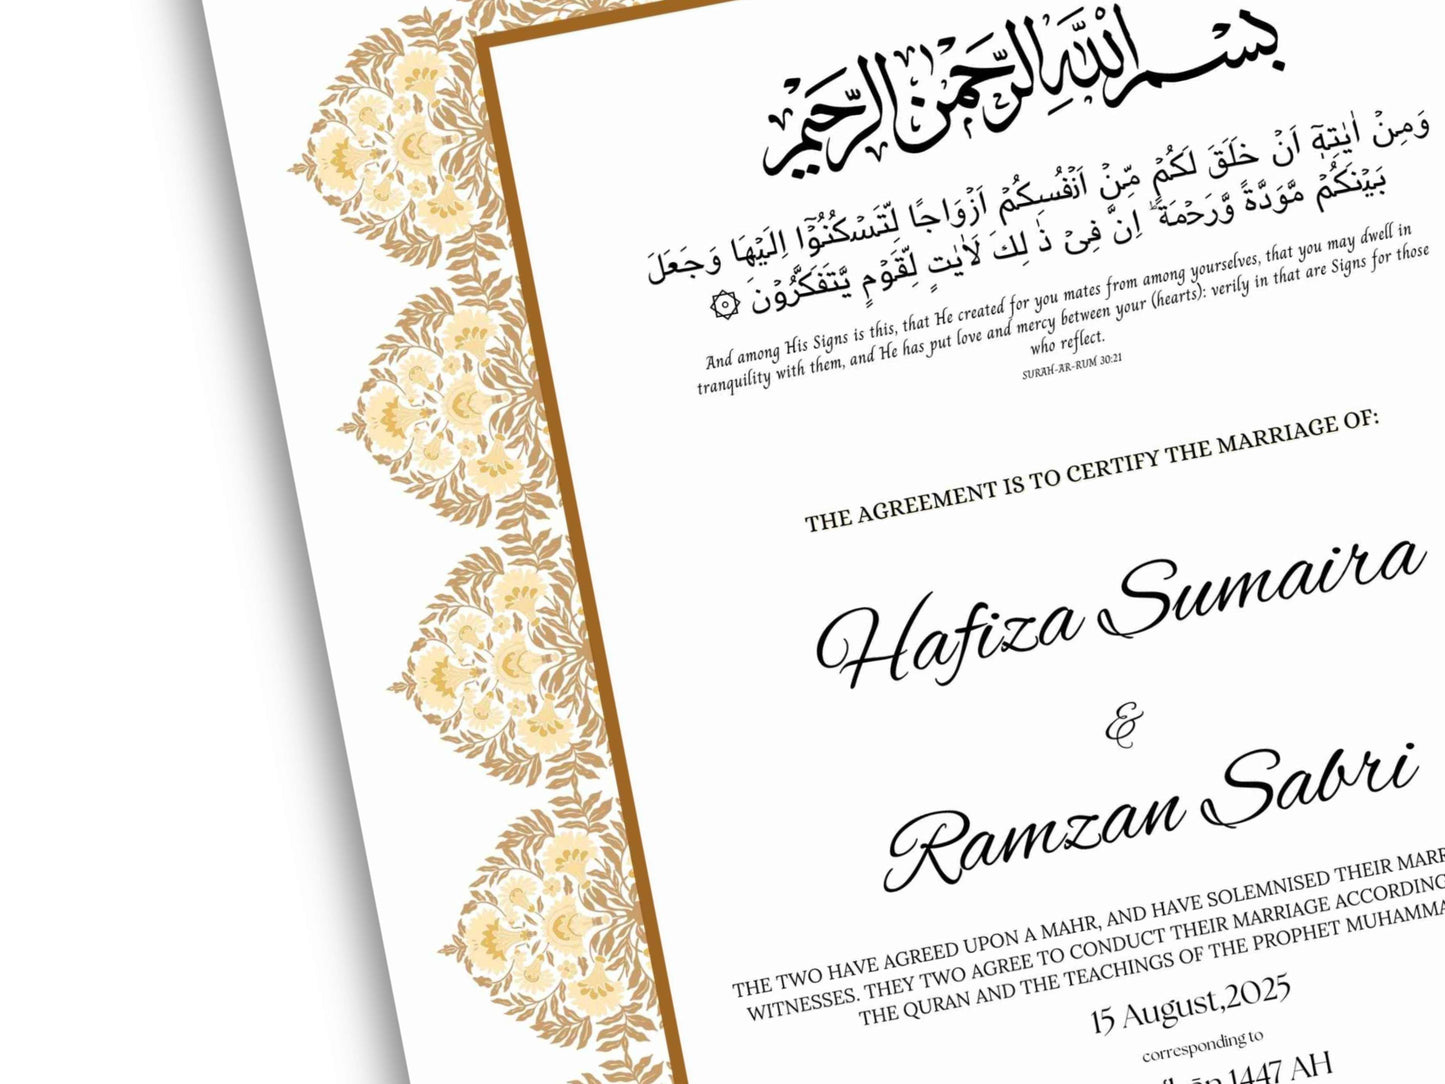 بِسْمِ اللَّهِ الرَّحْمَنِ الرَّحِيمِ
وَمِنْ اٰيٰتِهٖٓ اَنْ خَلَقَ لَكُمْ مِّنْ اَنْفُسِكُمْ اَزْوَاجًا لِّتَسْكُنُوْٓا اِلَيْهَا وَجَعَلَ
بَيْنَكُمْ مَّوَدَّةً وَّرَحْمَةً ؕ اِنَّ فِىْ ذٰ لِكَ لَاٰيٰتٍ لِّقَوْمٍ يَّتَفَكَّرُوْنَ ۞
And among His Signs is this, that He created for you mates from among yourselves, that you may dwell in
tranquility with them, and He has put love and mercy between your (hearts): verily in that are Signs for those
who reflect.
SURAH-AR-RUM 30:21
THE AGREEMENT IS TO CERTIFY THE MARRIAGE OF:
Hafiza Sumaira
&
Ramzan Sabri
THE TWO HAVE AGREED UPON A MAHR, AND HAVE SOLEMNISED THEIR MARR
WITNESSES. THEY TWO AGREE TO CONDUCT THEIR MARRIAGE ACCORDING
THE QURAN AND THE TEACHINGS OF THE PROPHET MUHAMMA
15 August,2025
corresponding to
1447 AH